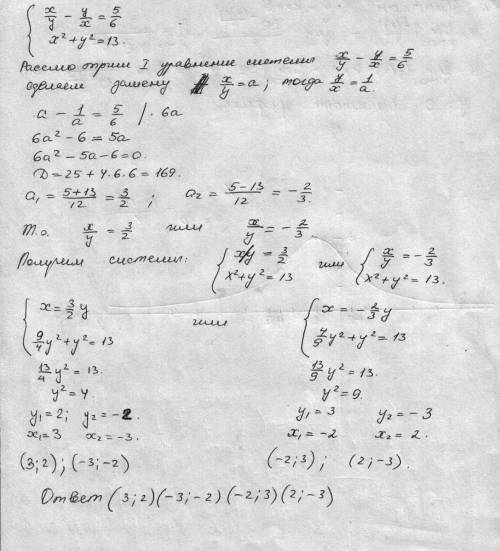 { x/y - y/x = 5/6
x² + y² = 13.
Рассмотрим I уравнение системы x/y - y/x = 5/6
сделаем замену x/y = a; тогда y/x = 1/a.
a - 1/a = 5/6 | · 6a
6a² - 6 = 5a
6a² - 5a - 6 = 0.
D = 25 + 4·6·6 = 169.
a₁ = (5+13)/12 = 3/2 ; a₂ = (5-13)/12 = -2/3.
Т.о. x/y = 3/2 или x/y = -2/3.
Получим системы: { x/y = 3/2 или { x/y = -2/3
x² + y² = 13 x² + y² = 13.
{ x = 3/2 y или { x = -2/3 y
9/4 y² + y² = 13 4/9 y² + y² = 13
13/4 y² = 13. 13/9 y² = 13.
y² = 4. y² = 9.
y₁ = 2; y₂ = -2. y₁ = 3 y₂ = -3
x₁ = 3 x₂ = -3. x₁ = -2 x₂ = 2.
(3; 2); (-3; -2) (-2; 3); (2; -3).
Ответ (3; 2) (-3; -2) (-2; 3) (2; -3)